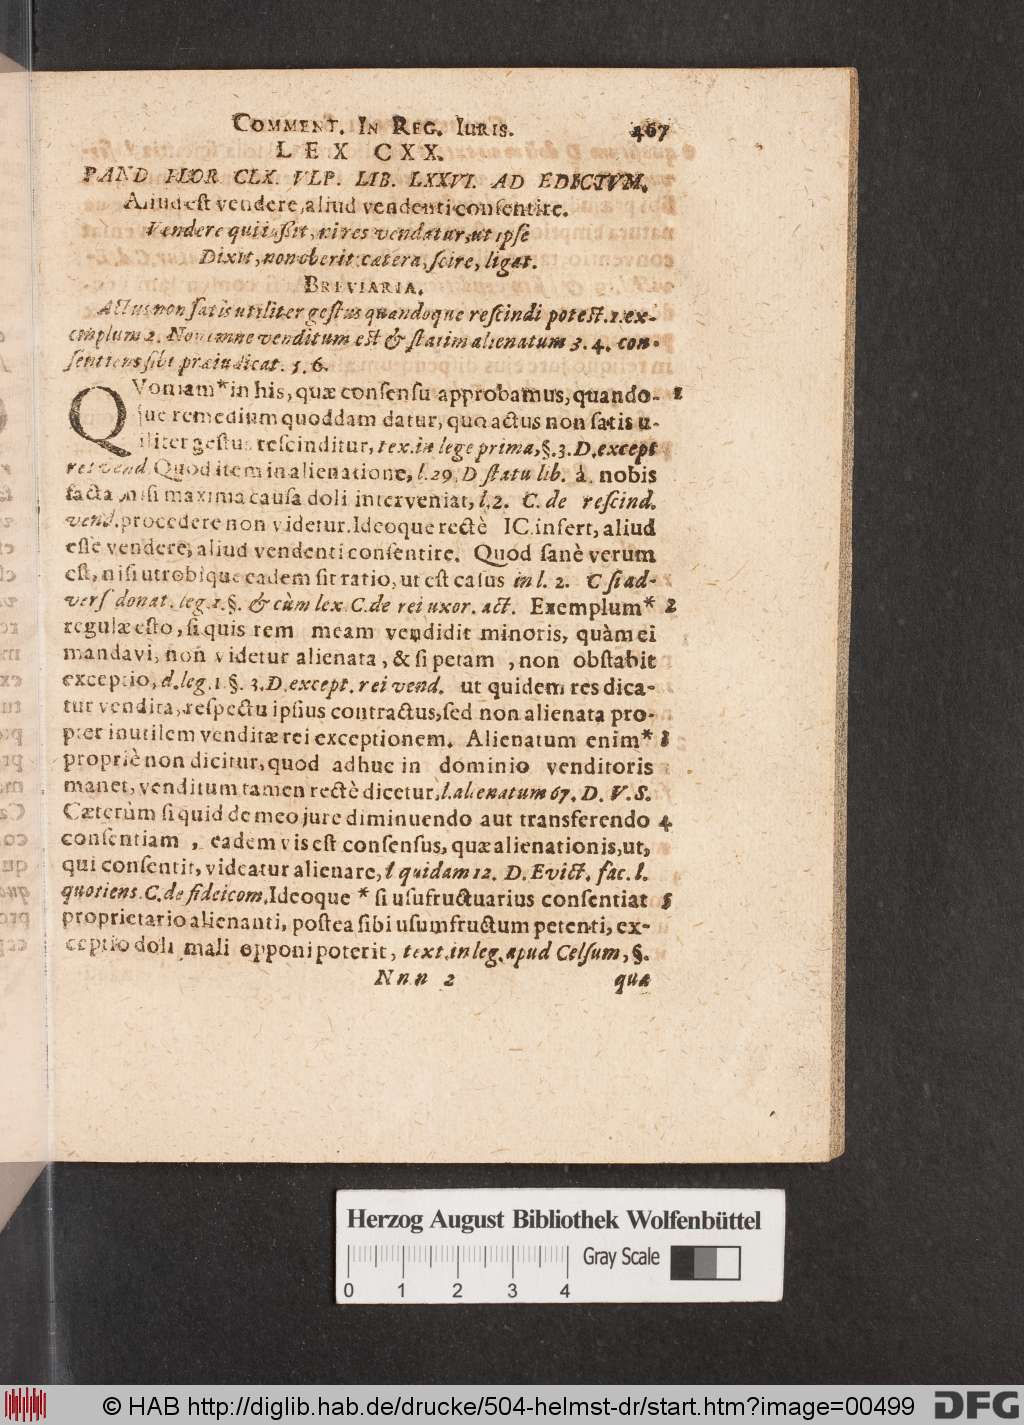 COMMENT. IN REG. IURIS. 467
LEX CXX.
PAND FLOR CLX. VLP. LIB. LXXVI. AD EDICTVM.
Aliud est vendere, aliud vendenti consentire.
Vendere qui jussit, ni res vendatur, ut ipse
Dixit, non oberit: cætera, scire, ligat.
BREVIARIA.
Actus non satis utiliter gestus quandoque rescindi potest. 1. ex-
emplum 2. Non omne venditum est & statim alienatum 3. 4. con-
sentiens sibi præiudicat. 5. 6.
QVoniam* in his, quæ consensu approbamus, quando- 1
que remedium quoddam datur, quo actus non satis u-
tiliter gestus rescinditur, tex. in lege prima, §. 3. D. except
rei vend. Quod item in alienatione, l. 29. D statu lib. à nobis
facta, nisi maxima causa doli interveniat, l. 2. C. de rescind.
vend. procedere non videtur. Ideoque rectè IC. infert, aliud
esse vendere, aliud vendenti consentire. Quod sanè verum
est, nisi utrobique eadem sit ratio, ut est casus in l. 2. C si ad-
vers donat. leg. 1. §. & cùm lex. C. de rei uxor. act. Exemplum* 2
regulæ esto, si quis rem meam vendidit minoris, quàm ei
mandavi, non videtur alienata, & si petam, non obstabit
exceptio, d. leg. 1. §. 3. D. except. rei vend. ut quidem res dica-
tur vendita, respectu ipsius contractus, sed non alienata pro-
pter inutilem venditæ rei exceptionem. Alienatum enim* 3
propriè non dicitur, quod adhuc in dominio venditoris
manet, venditum tamen rectè dicetur, l. alienatum 67. D. V. S.
Cæterùm si quid de meo jure diminuendo aut transferendo 4
consentiam, eadem vis est consensus, quæ alienationis, ut,
qui consentit, videatur alienare, l quidam 12. D. Evict. fac. l.
quotiens. C. de fideicom. Ideoque * si usufructuarius consentiat 5
proprietario alienanti, postea sibi usumfructum petenti, ex-
ceptio doli mali opponi poterit, text. in leg. apud Celsum, §.
Nnn 2 quæ
Herzog August Bibliothek Wolfenbüttel
Gray Scale
0 1 2 3 4
© HAB http://diglib.hab.de/drucke/504-helmst-dr/start.htm?image=00499
DFG